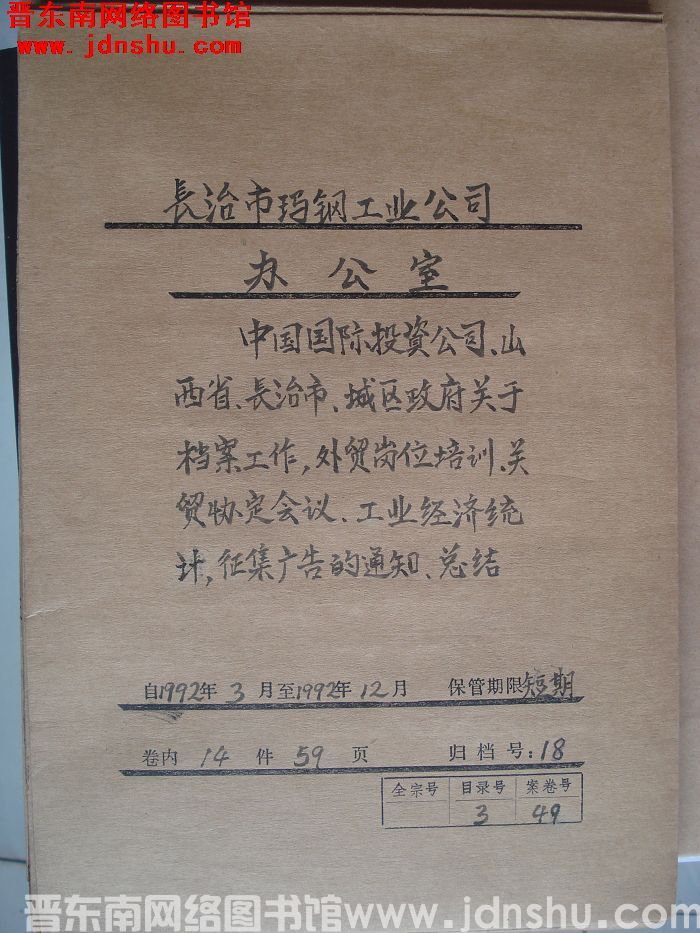 晋东南网络图书馆
www.jdnshu.com
長治市玛钢工业公司
办公室
中国国际投資公司、山
西省、長治市、城区政府关于
档案工作，外贸岗位培训、关
贸协定会议、工业经济统
计，征集广告的通知、总结
自1992年3月至1992年12月 保管期限短期
卷内14件59页 归档号：18
全宗号 目录号 案卷号
3 49
晋东南网络图书馆www.jdnshu.com